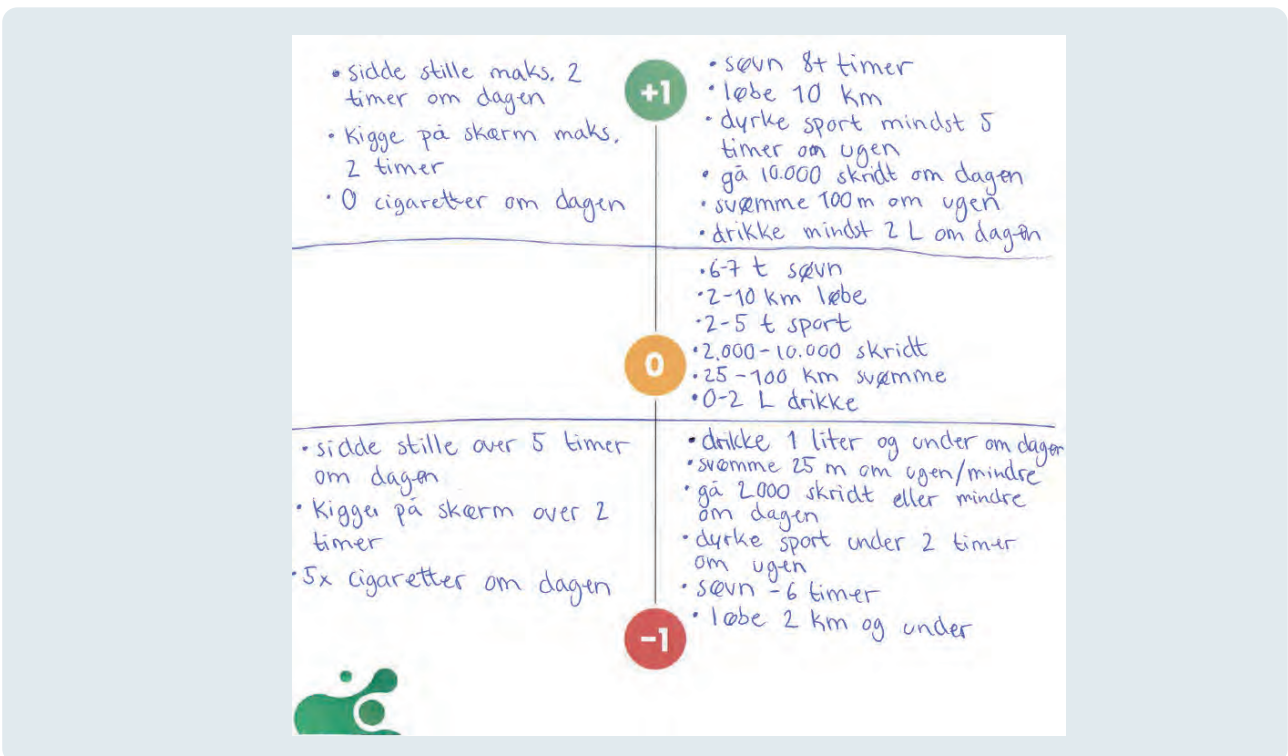 • sidde stille maks. 2
timer om dagen
• Kigge på skærm maks.
2 timer
• 0 cigaretter om dagen
+1
• søvn 8+ timer
• løbe 10 km
• dyrke sport mindst 5
timer om ugen
• gå 10.000 skridt om dagen
• svømme 100 m om ugen
• drikke mindst 2 L om dagen
0
• 6-7 t søvn
• 2-10 km løbe
• 2-5 t sport
• 2.000-10.000 skridt
• 25-100 km svømme
• 0-2 L drikke
• sidde stille over 5 timer
om dagen
• Kigger på skærm over 2
timer
• 5x cigaretter om dagen
• drikke 1 liter og under om dagen
• svømme 25 m om ugen/mindre
• gå 2.000 skridt eller mindre
om dagen
• dyrke sport under 2 timer
om ugen
• søvn -6 timer
• løbe 2 km og under
-1